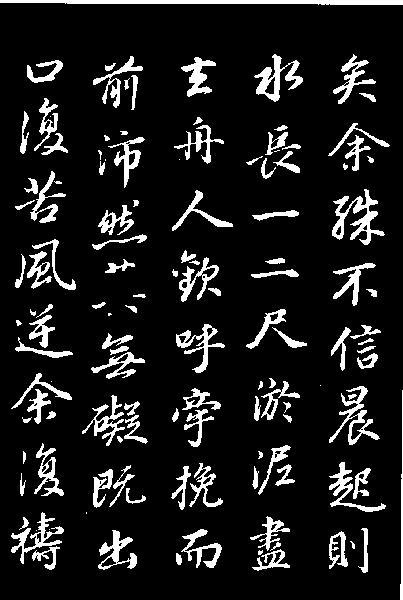 矣余殊不信晨起則
水長一二尺淤泥盡
去舟人歡呼牽挽而
前沛然無礙既出
口復苦風逆余復禱